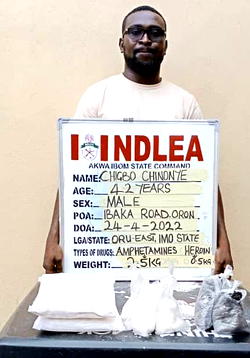 NDLEA
AKWA IBOM STATE COMMAND
NAME: CHIGBO CHINONYE
AGE: 42 YEARS
SEX: MALE
POA: IBAKA ROAD. ORON.
DOA: 24-4-2022
LGA/STATE: ORU-EAST, IMO STATE
TYPES OF DRUGS: AMPHETAMINES HEROIN
WEIGHT: 2.5KG 0.5KG